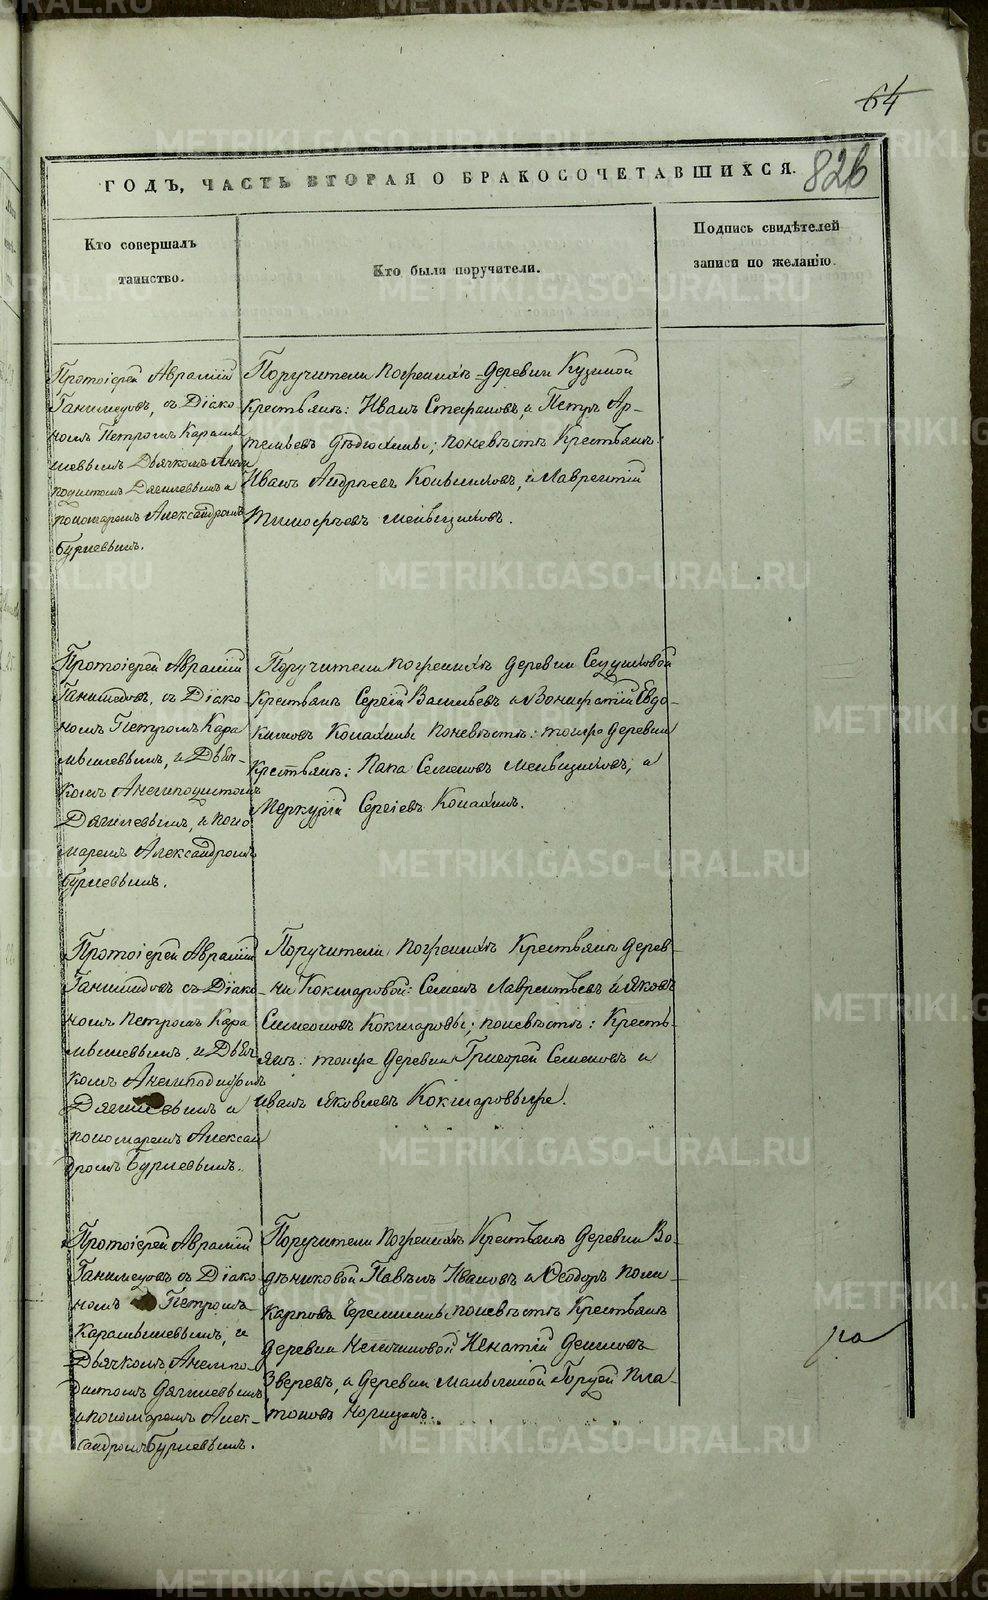 64
826
ГОДЪ, ЧАСТЬ ВТОРАЯ О БРАКОСОЧЕТАВШИХСЯ.
Кто совершалъ
таинство.
Кто были поручители.
Подпись свидѣтелей
записи по желанію.
Протоіерей Аврамій
Ганимедовъ, съ Діако
номъ Петромъ Карамы
шевымъ Дьячкомъ Анем
подистомъ Дягилевымъ и
пономаремъ Александромъ
Бурневымъ.
Поручители по женихѣ деревни Кузиной
Крестьянѣ: Иванъ Стефановъ, и Петръ Ар-
темьевъ; по невѣстѣ Крестьянѣ:
Иванъ Андреевъ, и Лаврентій
Тимофѣевъ Меньщиковъ.
Протоіерей Аврамій
Ганимедовъ, съ Діако-
номъ Петромъ Кара
мышевымъ, и Дьяч-
комъ Анемподистомъ
Дягилевымъ, и поно
маремъ Александромъ
Бурневымъ.
Поручители по женихѣ деревни
Крестьянѣ Сергій Васильевъ и Вонифатій Евдо-
кимовъ по невѣстѣ: тоиже деревни
Крестьянѣ: Папа Семеновъ Меньщиковъ, и
Меркурій Сергіевъ.
Протоіерей Аврамій
Ганимедовъ съ Діако-
номъ Петромъ Кара
мышевымъ, и Дьяч
комъ Анемподистомъ
Дягилевымъ и
пономаремъ Алексан
дромъ Бурневымъ.
Поручители по женихѣ Крестьянѣ дерев-
ни Кокшаровой: Семенъ Лаврентьевъ и Яковъ
Симеоновъ Кокшаровы; по невѣстѣ: Кресть-
янѣ: тоиже деревни Григорей Семеновъ и
Иванъ Яковлевъ Кокшаровыже.
Протоіерей Аврамій
Ганимедовъ съ Діако-
номъ Петромъ
Карамышевымъ, и
Дьячкомъ Анемпо-
дистомъ Дягилевымъ
и пономаремъ Алек-
сандромъ Бурневымъ.
Поручители по женихѣ Крестьянѣ деревни Во-
дѣниковой Павелъ Ивановъ и Ѳеодоръ Поли-
карповъ по невѣстѣ Крестьянѣ
деревни Игнатій
Зверевъ, и деревни Пла-
тоновъ.